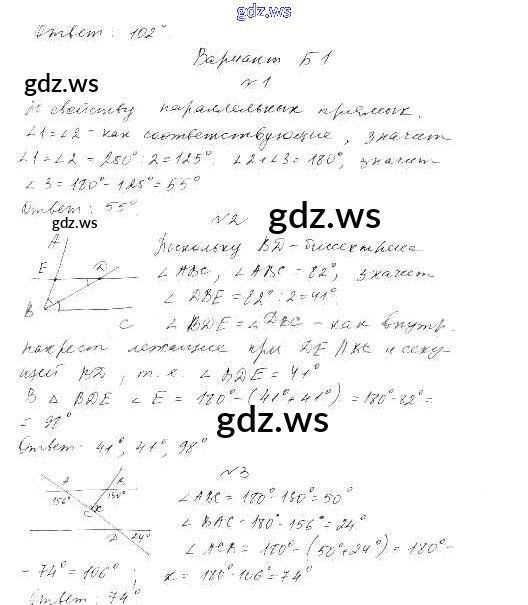 gdz.ws
Ответ: 102°.
Вариант Б1
gdz.ws
№1
По свойству параллельных прямых.
∠1=∠2 - как соответствующие, значит
∠1=∠2 = 250°:2=125°. ∠2+∠3=180°, значит
∠3=180°-125°=55°
Ответ: 55°.
№2
gdz.ws
gdz.ws
A
E
D
B
C
Поскольку BD-биссектриса
∠ABC, ∠ABC=82°, значит
∠DBE=82°:2=41°.
∠BDE=∠DBC - как внутр.
накрест лежащие при DE∥BC и секу-
щей BD, т.е. ∠BDE=41°
В △ BDE ∠E = 180°-(41°+41°)=180°-82°=
= 98°
gdz.ws
Ответ: 41°, 41°, 98°
№3
A
B
156°
130°
C
x
D
24°
∠ABC=180°-130°=50°
∠BAC=180°-156°=24°
∠ACB=180°-(50°+24°)=180°-
-74°=106°; x=180°-106°=74°
Ответ: 74°
gdz.ws